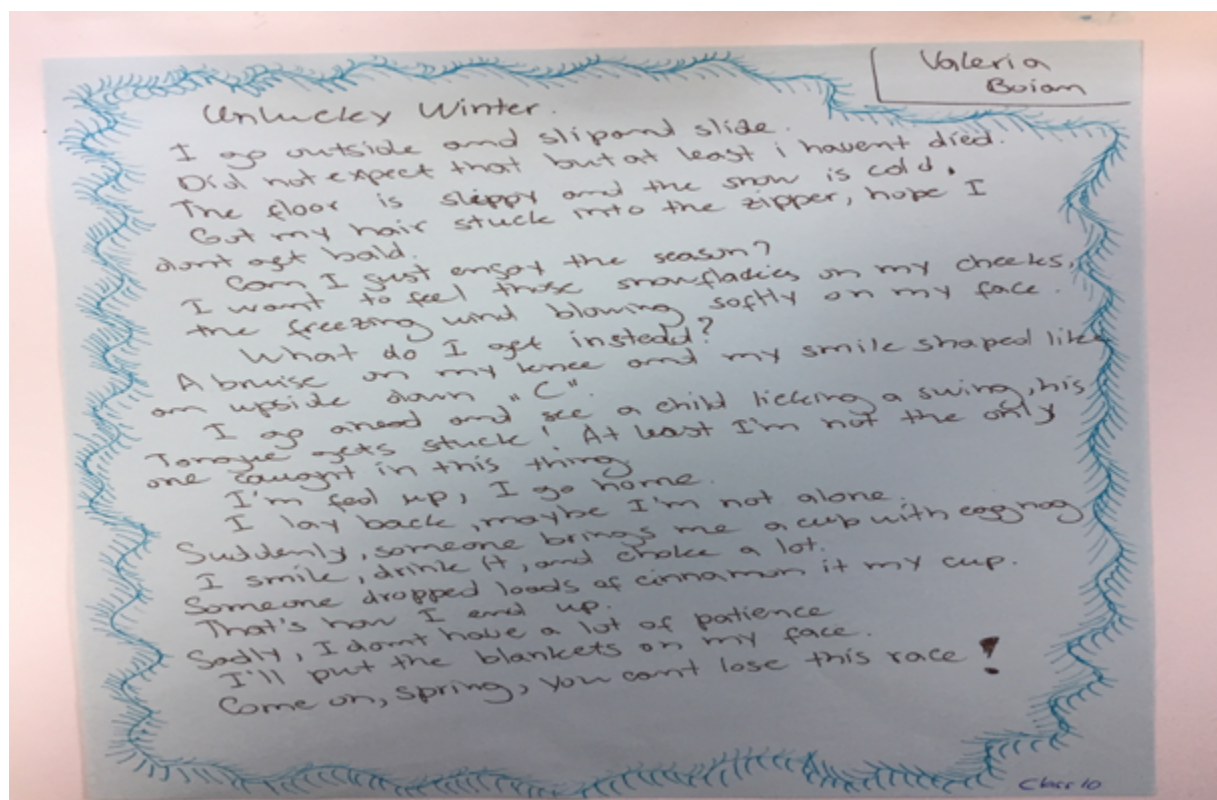 Valeria
Boian
Unlucky Winter.
I go outside and slip and slide.
Did not expect that but at least i havent died.
The floor is slippy and the snow is cold,
Got my hair stuck into the zipper, hope I
dont get bald.
Can I just enjoy the season?
I want to feel those snowfladies on my cheeks,
the freezing wind blowing softly on my face.
What do I get instead?
A bruise on my knee and my smile shaped like
an upside down "C".
I go ahead and see a child licking a swing, his
Tongue gets stuck! At least I'm not the only
one caught in this thing
I'm fed up, I go home.
I lay back, maybe I'm not alone.
Suddenly, someone brings me a cup with eggnog
I smile, drink it, and choke a lot.
Someone dropped loads of cinnamon it my cup.
That's how I end up.
Sadly, I dont have a lot of patience
I'll put the blankets on my face.
Come on, spring, you cant lose this race!
Class 10